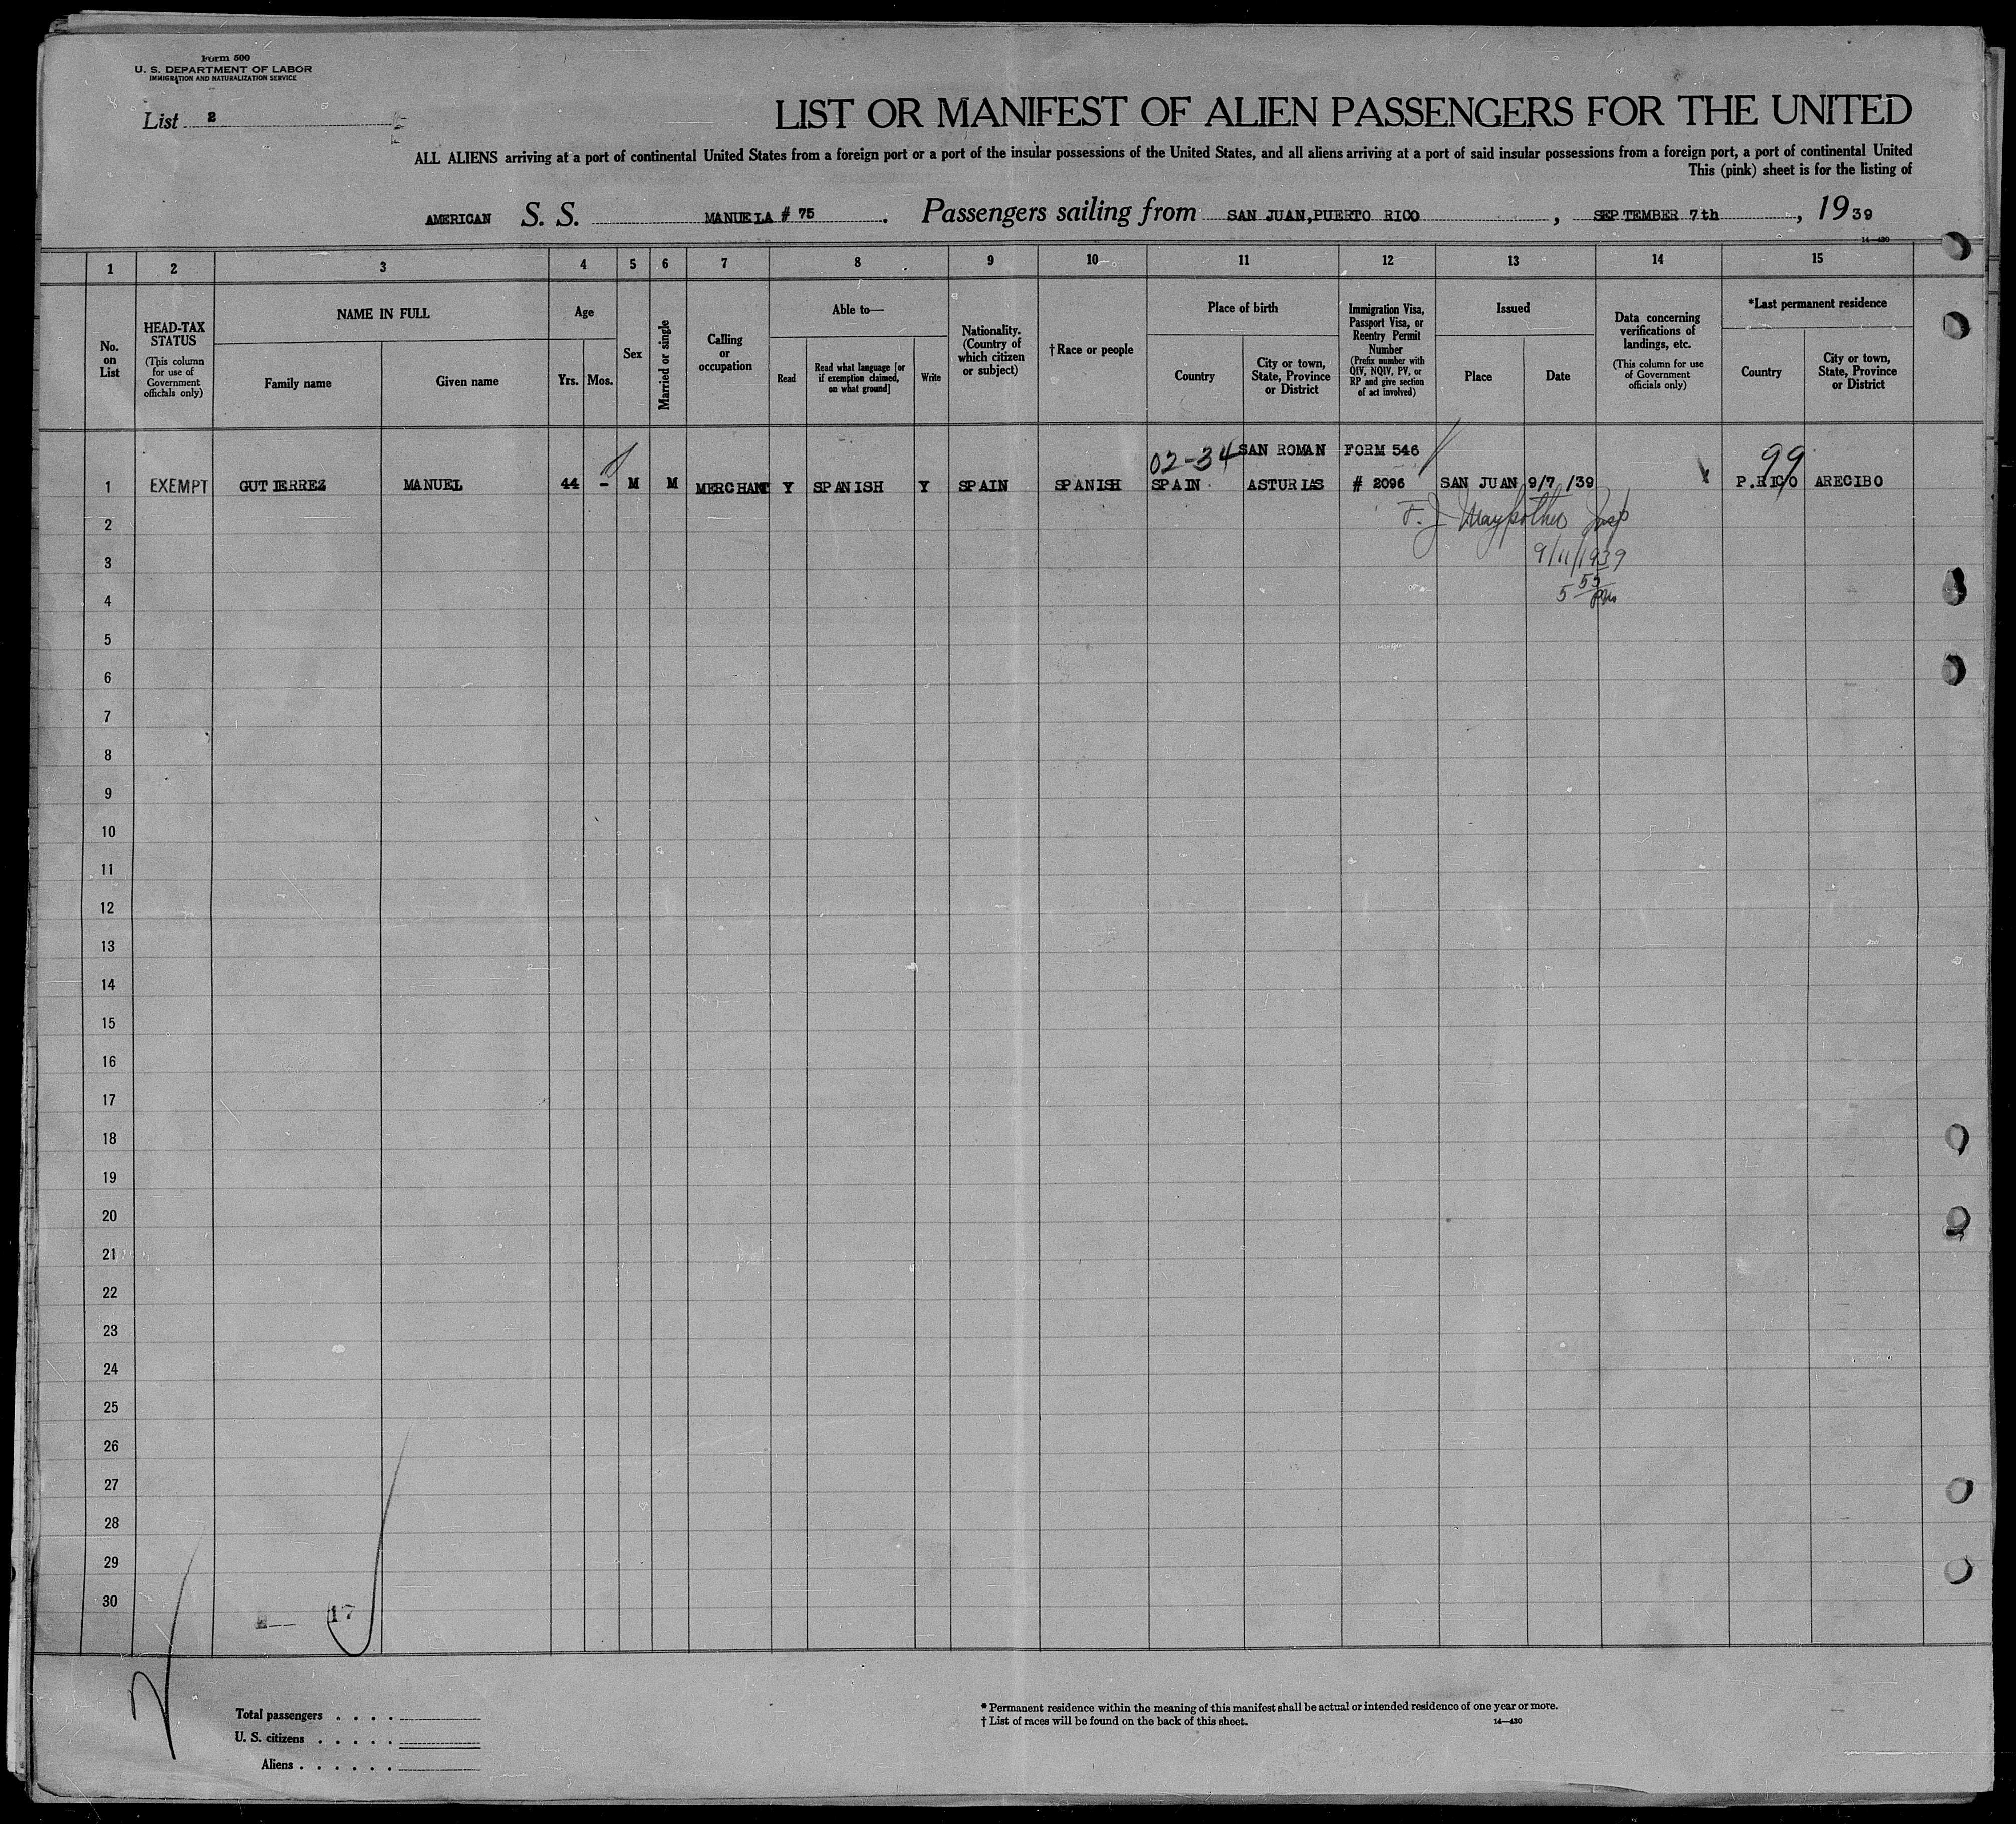 Form 500
U. S. DEPARTMENT OF LABOR
IMMIGRATION AND NATURALIZATION SERVICE
List 2
LIST OR MANIFEST OF ALIEN PASSENGERS FOR THE UNITED
ALL ALIENS arriving at a port of continental United States from a foreign port or a port of the insular possessions of the United States, and all aliens arriving at a port of said insular possessions from a foreign port, a port of continental United
This (pink) sheet is for the listing of
AMERICAN S. S. MANUELA # 75 . Passengers sailing from SAN JUAN, PUERTO RICO , SEPTEMBER 7th , 1939
14—430
1 2 3 4 5 6 7 8 9 10 11 12 13 14 15
No. on List
HEAD-TAX STATUS
(This column for use of Government officials only)
NAME IN FULL
Family name
Given name
Age
Yrs.
Mos.
Sex
Married or single
Calling or occupation
Able to—
Read
Read what language [or if exemption claimed, on what ground]
Write
Nationality. (Country of which citizen or subject)
† Race or people
Place of birth
Country
City or town, State, Province or District
Immigration Visa, Passport Visa, or Reentry Permit Number
(Prefix number with QIV, NQIV, PV, or RP and give section of act involved)
Issued
Place
Date
Data concerning verifications of landings, etc.
(This column for use of Government officials only)
*Last permanent residence
Country
City or town, State, Province or District
02-34 SAN ROMAN FORM 546 99
1 EXEMPT GUTIERREZ MANUEL 44 - M M MERCHANT Y SPANISH Y SPAIN SPANISH SPAIN ASTURIAS # 2096 SAN JUAN 9/7/39 P.RICO ARECIBO
2 F. J. Insp
3 9/11/1939
4 5 55 pm
5
6
7
8
9
10
11
12
13
14
15
16
17
18
19
20
21
22
23
24
25
26
27
28
29
30
17
Total passengers . . . .
U. S. citizens . . . . .
Aliens . . . . . .
* Permanent residence within the meaning of this manifest shall be actual or intended residence of one year or more.
† List of races will be found on the back of this sheet.
14—430